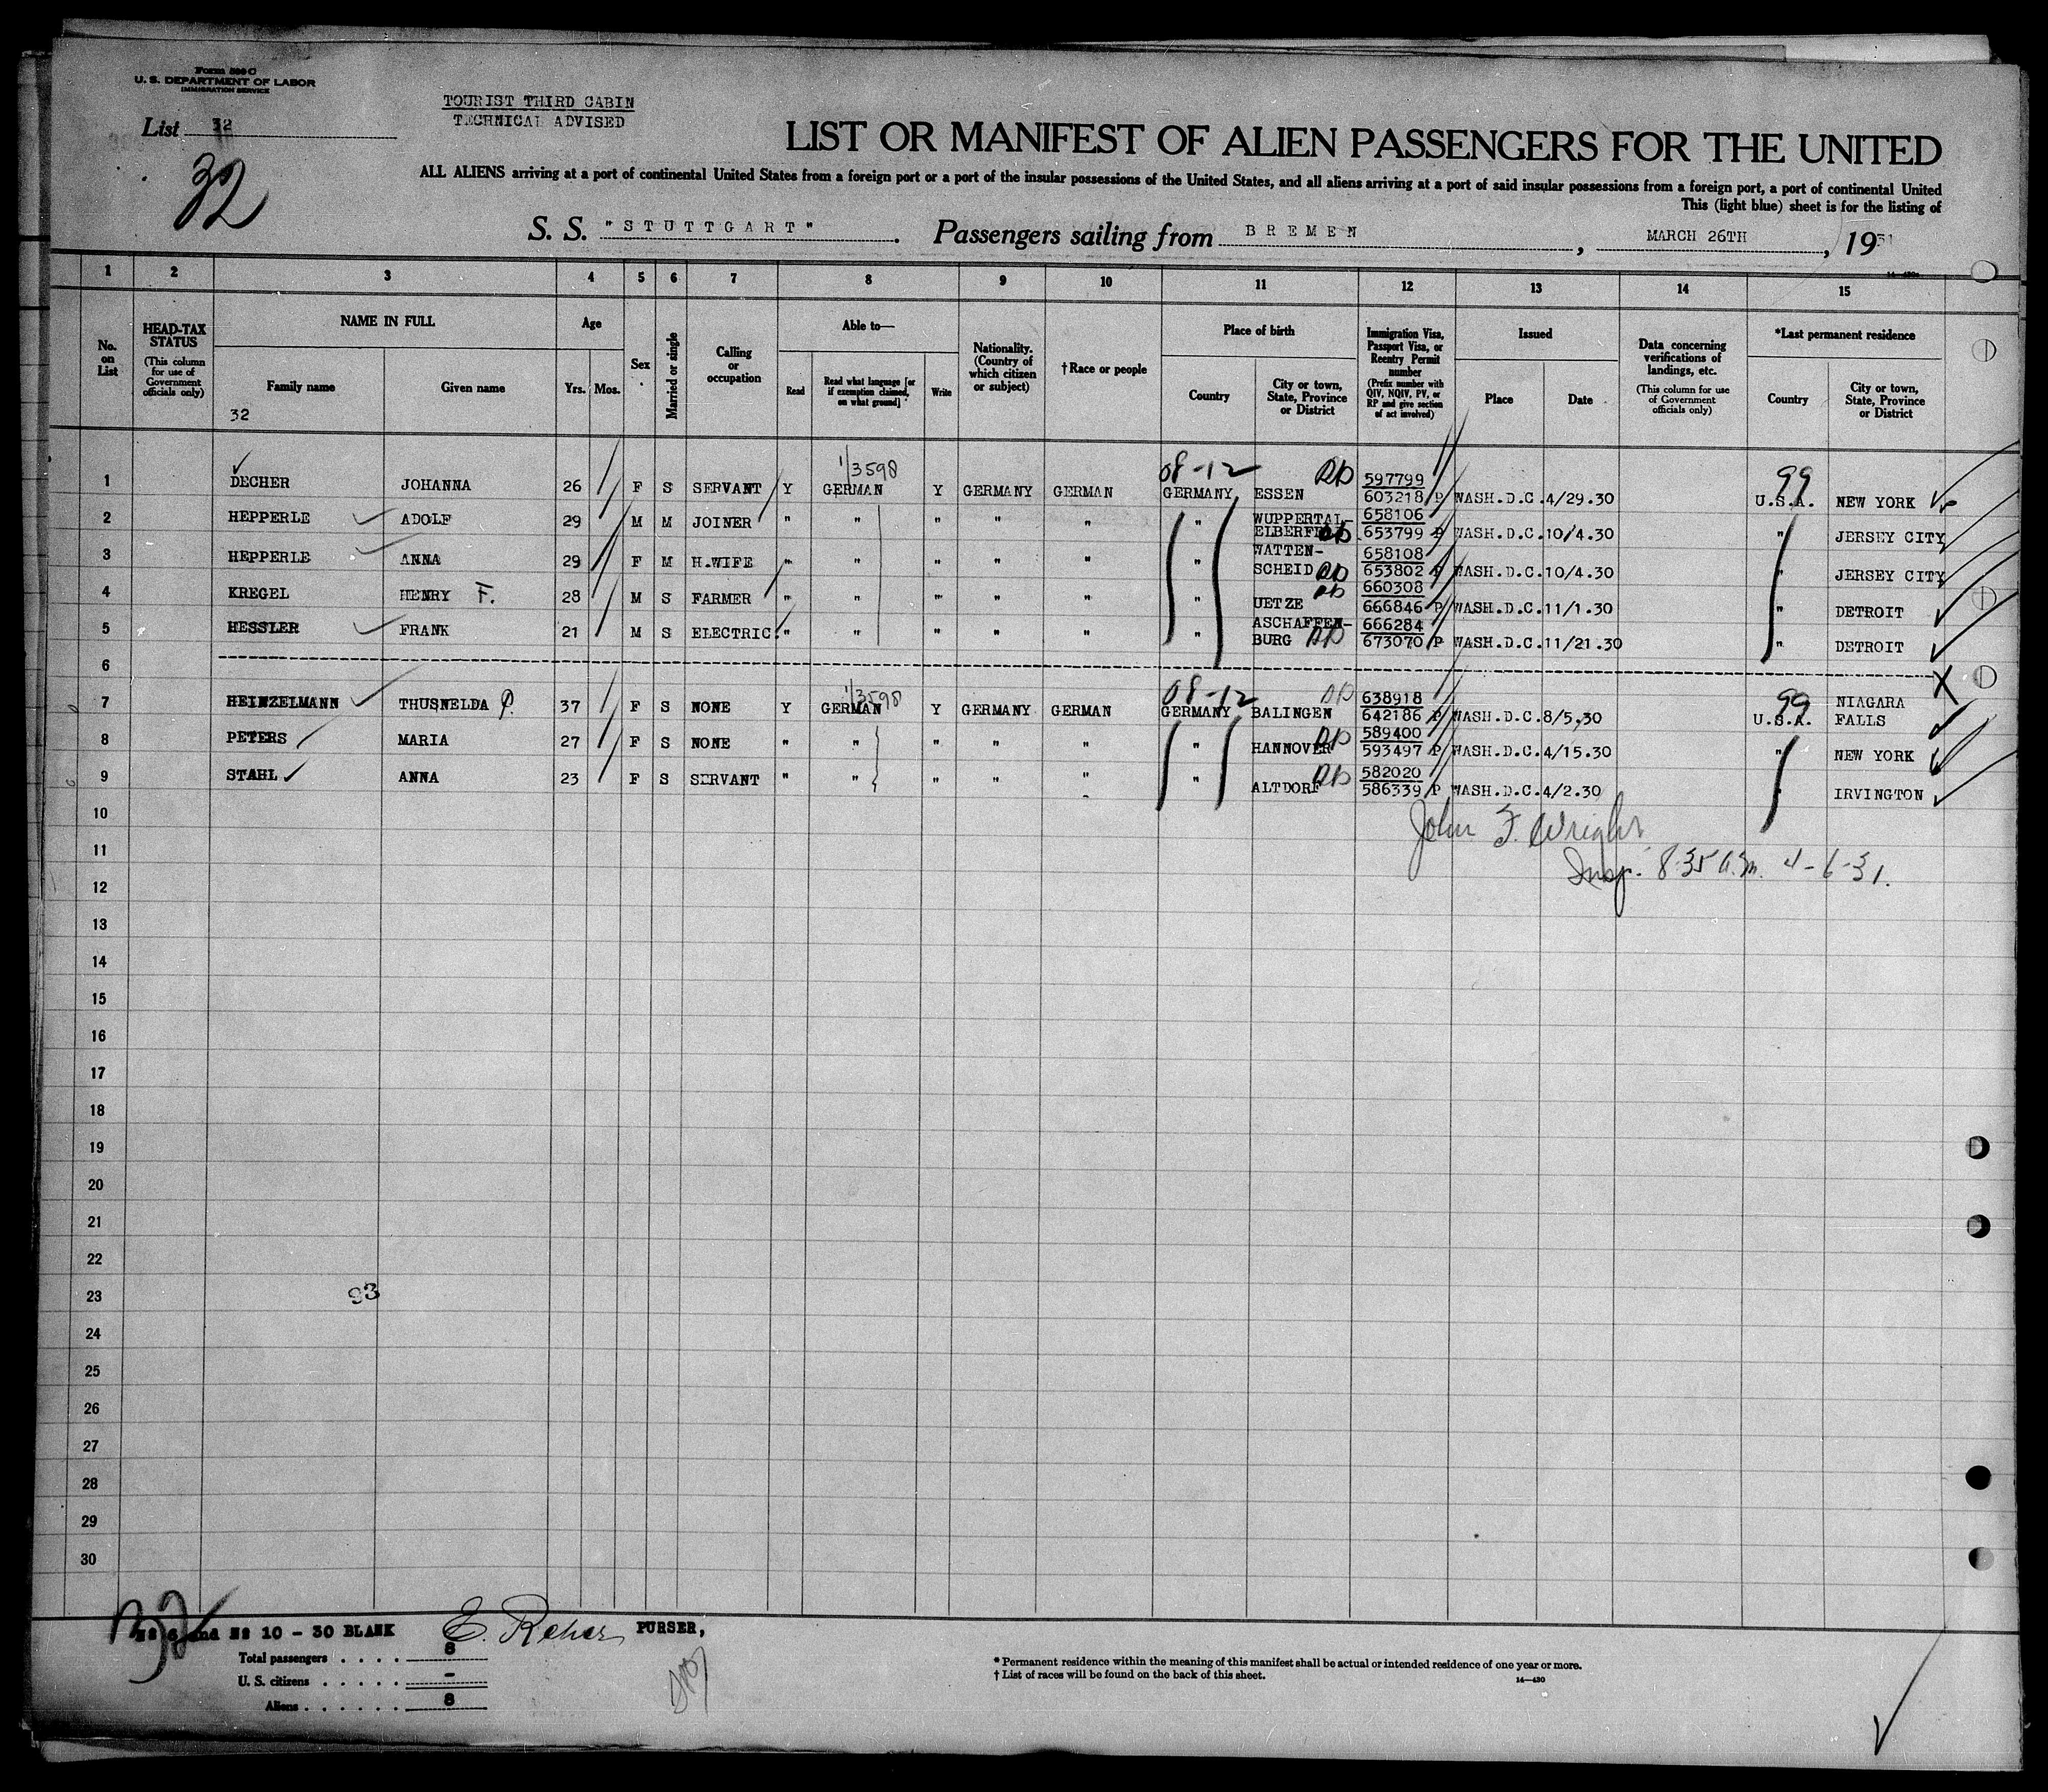 Form 500 C
U. S. DEPARTMENT OF LABOR
IMMIGRATION SERVICE
List 32
32
TOURIST THIRD CABIN
TECHNICAL ADVISED
LIST OR MANIFEST OF ALIEN PASSENGERS FOR THE UNITED
ALL ALIENS arriving at a port of continental United States from a foreign port or a port of the insular possessions of the United States, and all aliens arriving at a port of said insular possessions from a foreign port, a port of continental United
This (light blue) sheet is for the listing of
S. S. "STUTTGART". Passengers sailing from BREMEN, MARCH 26TH, 1931
14-430
1 2 3 4 5 6 7 8 9 10 11 12 13 14 15
No. on List
HEAD-TAX STATUS (This column for use of Government officials only)
NAME IN FULL
Family name
Given name
32
Age
Yrs. Mos.
Sex
Married or single
Calling or occupation
Able to—
Read
Read what language [or if exemption claimed, on what ground]
Write
Nationality. (Country of which citizen or subject)
† Race or people
Place of birth
Country
City or town, State, Province or District
Immigration Visa, Passport Visa, or Reentry Permit number (Prefix number with QIV, NQIV, PV, or RP and give section of act involved)
Issued
Place
Date
Data concerning verifications of landings, etc. (This column for use of Government officials only)
*Last permanent residence
Country
City or town, State, Province or District
1/3598 08-12 99
1 DECHER JOHANNA 26 F S SERVANT Y GERMAN Y GERMANY GERMAN GERMANY ESSEN 597799 603218 P WASH.D.C. 4/29.30 U.S.A. NEW YORK
2 HEPPERLE ADOLF 29 M M JOINER " " " " " " WUPPERTAL-ELBERFELD 658106 653799 P WASH.D.C. 10/4.30 " JERSEY CITY
3 HEPPERLE ANNA 29 F M H.WIFE " " " " " " WATTEN-SCHEID 658108 653802 P WASH.D.C. 10/4.30 " JERSEY CITY
4 KREGEL HENRY F. 28 M S FARMER " " " " " " UETZE 660308 666846 P WASH.D.C. 11/1.30 " DETROIT
5 HESSLER FRANK 21 M S ELECTRIC. " " " " " " ASCHAFFEN-BURG 666284 673070 P WASH.D.C. 11/21.30 " DETROIT
6
1/3598 08-12 99
7 HEINZELMANN THUSNELDA P. 37 F S NONE Y GERMAN Y GERMANY GERMAN GERMANY BALINGEN 638918 642186 P WASH.D.C. 8/5.30 U.S.A. NIAGARA FALLS
8 PETERS MARIA 27 F S NONE " " " " " " HANNOVER 589400 593497 P WASH.D.C. 4/15.30 " NEW YORK
9 STAHL ANNA 23 F S SERVANT " " " " " " ALTDORF 582020 586339 P WASH.D.C. 4/2.30 IRVINGTON
10
John F. Wright
11
Insp. 8-35 a.m. 4-6-31.
12
13
14
15
16
17
18
19
20
21
22
23
93
24
25
26
27
28
29
30
32
№ 6 and № 10 - 30 BLANK
E. Reher PURSER,
Total passengers . . . . 8
U. S. citizens . . . . . -
Aliens . . . . . . 8
* Permanent residence within the meaning of this manifest shall be actual or intended residence of one year or more.
† List of races will be found on the back of this sheet.
14-430